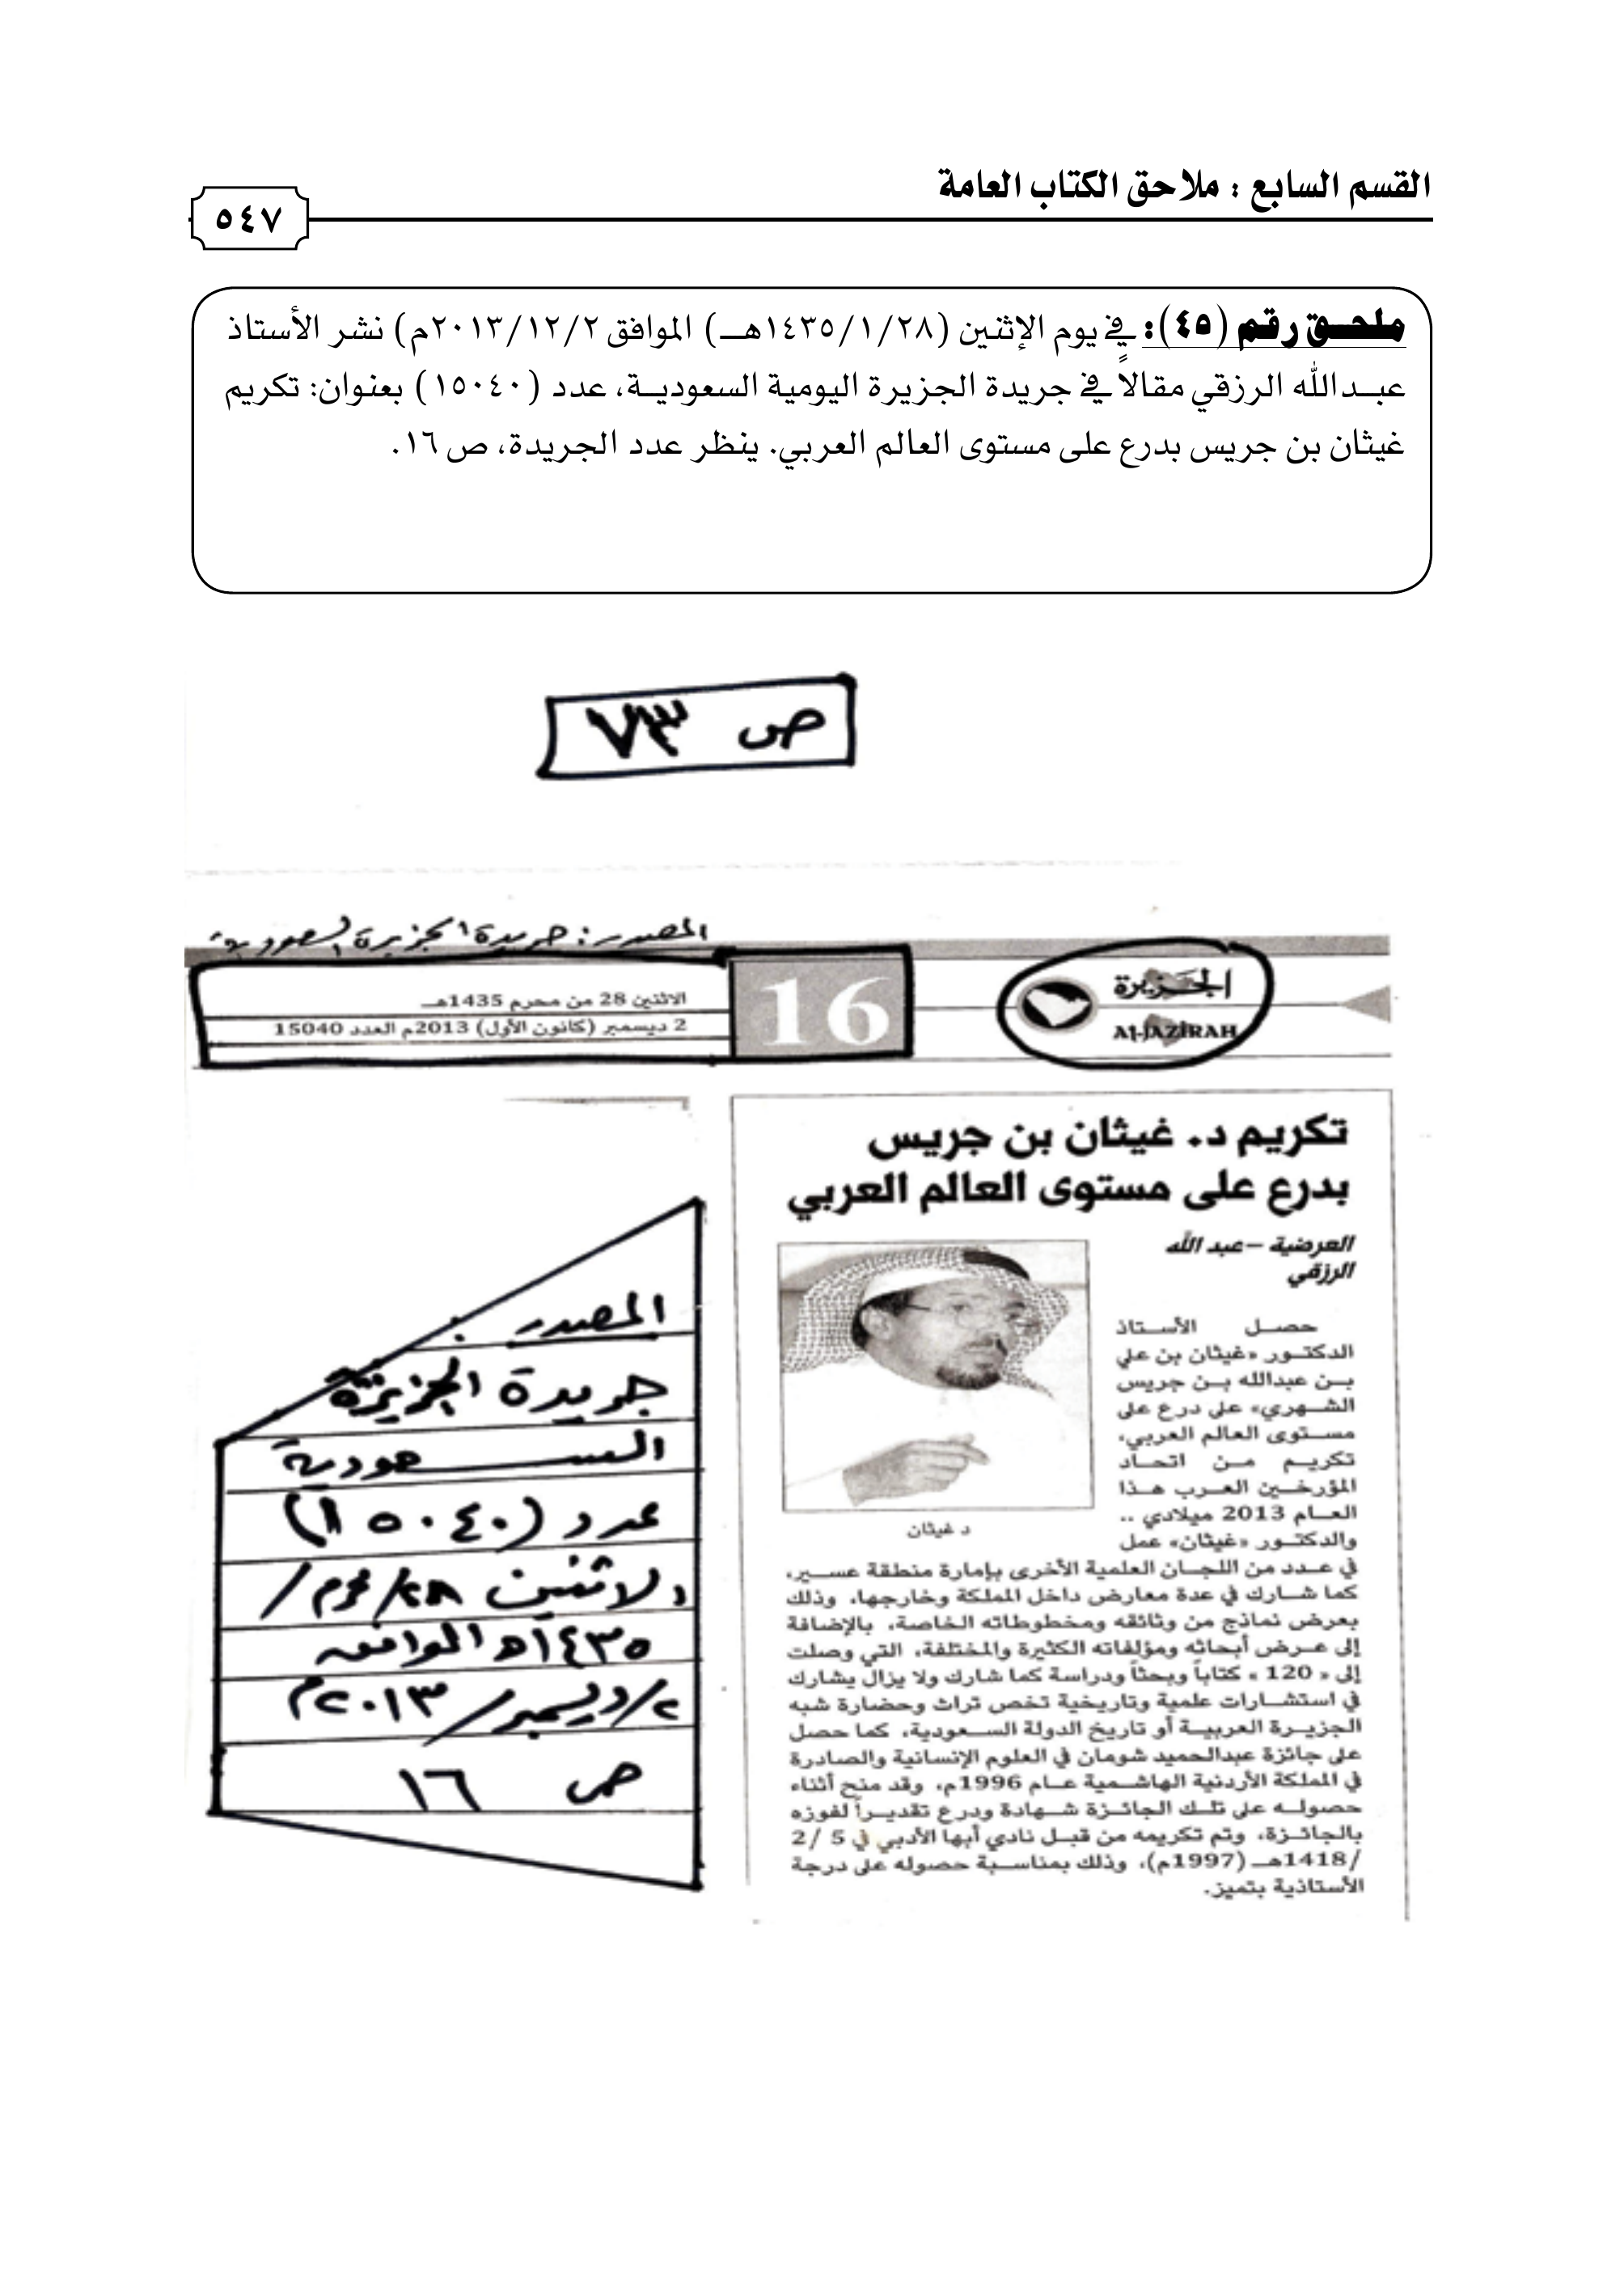 القسم السابع : ملاحق الكتاب العامة
٥٤٧
ملحـــق رقم (٤٥): في يوم الإثنين (١٤٣٥/١/٢٨هـــ) الموافق ٢٠١٣/١٢/٢م) نشر الأستاذ
عبـدالله الرزقي مقالاً في جريدة الجزيرة اليومية السعوديـة، عدد (١٥٠٤٠) بعنوان: تكريم
غيثان بن جريس بدرع على مستوى العالم العربي. ينظر عدد الجريدة، ص ١٦.
ص ٧٣
المصدر: جريدة الجزيرة السعودية
الجزيرة
Al-JAZIRAH
16
الاثنين 28 من محرم 1435هـ
2 ديسمبر (كانون الأول) 2013م العدد 15040
تكريم د. غيثان بن جريس
بدرع على مستوى العالم العربي
العرضية – عبد الله
الرزقي
حصل الأستاذ
الدكتور «غيثان بن علي
بن عبدالله بن جريس
الشهري» على درع على
مستوى العالم العربي،
تكريم من اتحاد
المؤرخين العرب هذا
العام 2013 ميلادي ..
والدكتور «غيثان» عمل
د غيثان
في عدد من اللجان العلمية الأخرى بإمارة منطقة عسير،
كما شارك في عدة معارض داخل المملكة وخارجها، وذلك
بعرض نماذج من وثائقه ومخطوطاته الخاصة، بالإضافة
إلى عرض أبحاثه ومؤلفاته الكثيرة والمختلفة، التي وصلت
إلى « 120 » كتاباً وبحثاً ودراسة كما شارك ولا يزال يشارك
في استشارات علمية وتاريخية تخص تراث وحضارة شبه
الجزيرة العربية أو تاريخ الدولة السعودية، كما حصل
على جائزة عبدالحميد شومان في العلوم الإنسانية والصادرة
في المملكة الأردنية الهاشمية عام 1996م، وقد منح أثناء
حصوله على تلك الجائزة شهادة ودرع تقديراً لفوزه
بالجائزة، وتم تكريمه من قبل نادي أبها الأدبي في 5 /2
/1418هـ (1997م)، وذلك بمناسبة حصوله على درجة
الأستاذية بتميز.
المصدر :
جريدة الجزيرة
السعودية
عدد (١٥٠٤٠)
الاثنين ٢٨/محرم/
١٤٣٥هـ الموافق
٢/ديسمبر/٢٠١٣م
ص ١٦